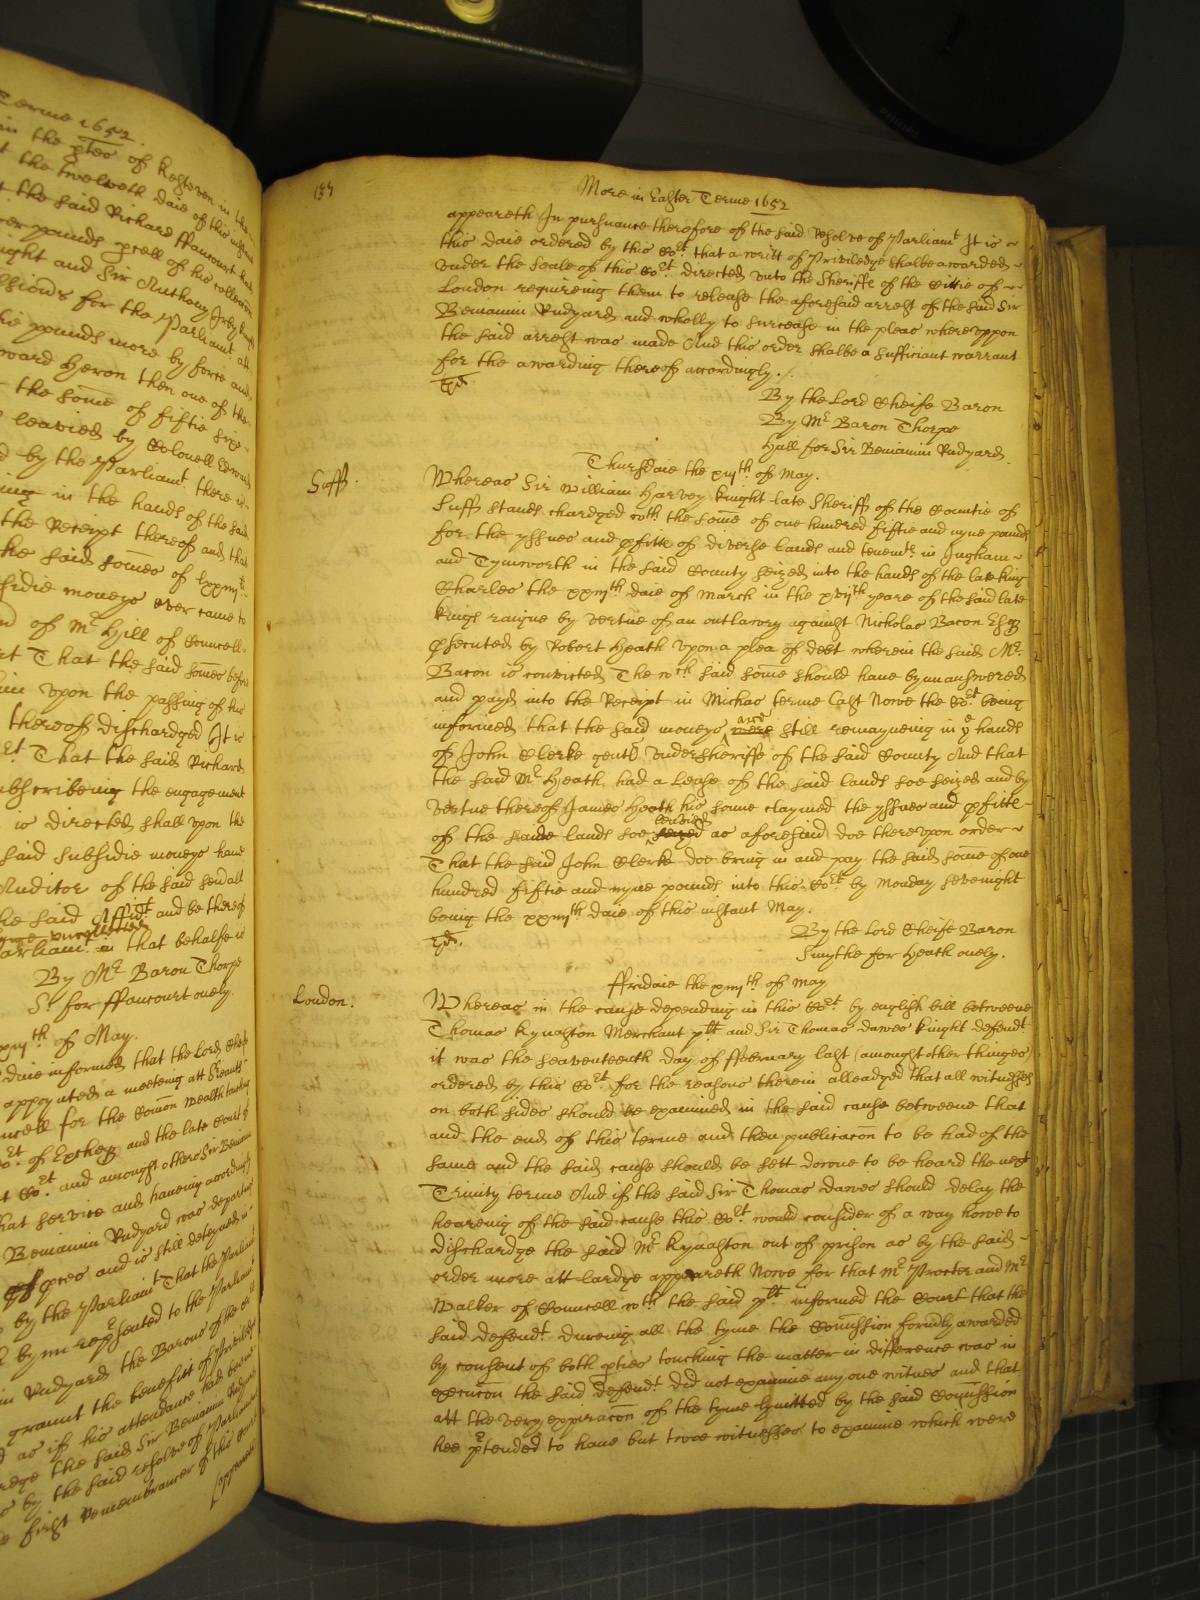 Terme 1652.
in the ptes of Kesteven in the
t the twelveth daie of this instant
t the said Richard ffancourt that
ver pounds pcell of his colleccon
ught and Sir Anthony Irby knight
ssions for the Parliamt. att
ie pounds more by force and
ward Heron then one of the
the some of fiftie sixe
leavied by Colonell Edward
d by the Parliamt. there is
ing in the hands of the said
the Receipt thereof and that
he said somes of lxxiijli
sidie moneys ever came to
n of Mr Hill of Councell
rt That the said somes before
him upon the passing of his
thereof dischardged It is
rt. That the said Richard
ubscribeing the engagement
is directed shall upon the
said subsidie moneys have
Auditor of the said
he said and be thereof
arliamt. in that behalfe is
By Mr Baron Thorpe
S. for ffancourt onely.
of May.
daie informed that the Lord Cheife
appoynted a meeteing att Serjants
ncell for the Comon wealth touching
Cort. of Excheqr and the late Court of
t Cort. and amongst others Sir Beniamin
hat service and haveing accordingly
Beniamin Rudyard was departing
ptes and is still deteyned in
by the Parliamt That the Parliamt
bynn repsented to the Parliamt
in Rudyard the Barons of the
graunt the benefitt of Priviledge
d as if his attendance had been
rge the said Sir Beniamin Rudyard
by the said resolve of Parliamt
first Remembrancer of this Court
[appeareth
More in Easter Terme 1652
appeareth In pursuance therefore of the said Resolve of Parliamt It is
this daie ordered by this Cort. that a writt of Priviledge shalbe awarded
under the Seale of this Cort. directed unto the Sheriffe of the Cittie of
London requireing them to release the aforesaid arrest of the said Sir
Beniamin Rudyard and wholly to surcease in the pleas whereuppon
the said arrest was made And this order shalbe a sufficiant warrant
for the awarding thereof accordingly.
By the Lord Cheife Baron
By Mr. Baron Thorpe
Hall for Sir Beniamin Rudyard.
Thursdaie the xiijth of May.
Suff.
Whereas Sir William Harvey knight late Sheriff of the Countie of
Suff stands chardged wth. the some of one hundred fiftie and nyne pounds
for the yssues and pfitts of diverse lands and tenemts. in Ingham
and Tymworth in the said County seized into the hands of the late king
Charles the xxiijth daie of March in the xviijth yeare of the said late
kings raigne by vertue of an outlawry against Nicholas Bacon Esqr
psecuted by Robert Heath upon a plea of debt wherein the said Mr.
Bacon is convicted The wch said some should have bynn answered
and payd into the Receipt in Michas terme last Nowe the Cort. being
informed that the said moneys are were still remayneing in ye hands
of John Clerke gent undersheriffe of the said County And that
the said Mr Heath had a Lease of the said lands soe seized and by
vertue thereof James Heath his sonne claymed the yssues and pfitts
of the said lands soe leavied seized as aforesaid doe thereupon order
That the said John Clerke doe bring in and pay the said some of one
hundred fiftie and nyne pounds into this Cort. by Monday sevenight
being the xxiiijth daie of this instant May.
By the Lord Cheife Baron
Smythe for Heath onely.
ffridaie the xiiijth of May
London:
Whereas in the cause depending in this Cort. by english bill betweene
Thomas Kynaston Merchant plt. and Sir Thomas Dawes knight defendt.
it was the seaventeenth day of ffebruary last (amongst other thinges)
ordered by this Cort. for the reasons therein alleadged that all witnesses
on both sides should be examined in the said cause betweene that
and the end of this terme and then publicacon to be had of the
same and the said cause should be sett downe to be heard the next
Trinity terme And if the said Sir Thomas Dawes should delay the
heareing of the said cause this Cort. would consider of a way howe to
dischardge the said Mr Kynaston out of prison as by the said
order more att lardge appeareth Nowe for that Mr Procter and Mr
Walker of Councell wth. the said plt. informed the Court that the
said defendt. dureing all the tyme the Comission formerly awarded
by consent of both pties touching the matter in difference was in
execucon the said defendt. did not examine any one witnes and that
att the very expiracon of the tyme lymitted by the said Comission
hee ptended to have but twoe witnesses to examine which were